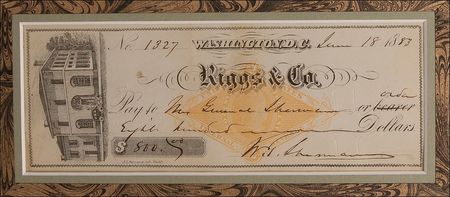 No. 1327 WASHINGTON, D.C. June 18 1883
Riggs & Co.
order
Pay to Mrs General Sherman or bearer
Eight hundred Dollars
$ 800.
W. T. Sherman